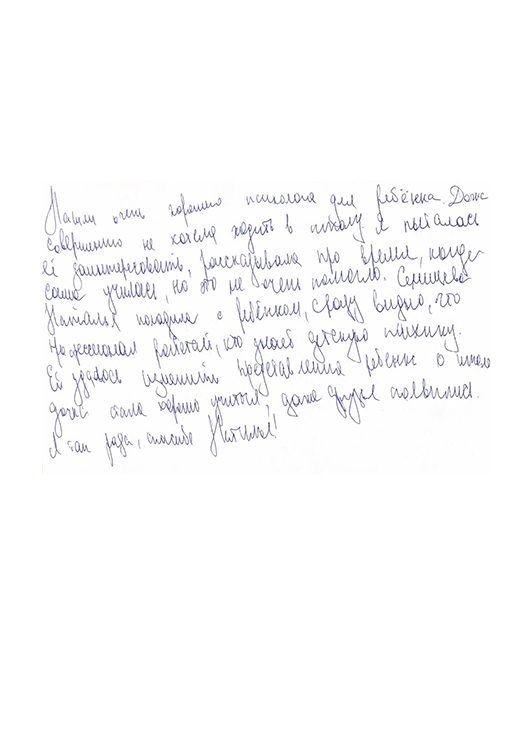 Нашли очень хорошего психолога для ребёнка. Дочь
совершенно не хотела ходить в школу. Я пыталась
её заинтересовать, рассказывала про время, когда
сама училась, но это не очень помогло.
Наталья поладила с ребёнком, сразу видно, что
профессионал работает, кто знает детскую психику.
Ей удалось изменить представления ребенка о школе
дочка стала хорошо учиться, даже друзья появились.
Я так рада, спасибо Наталья!